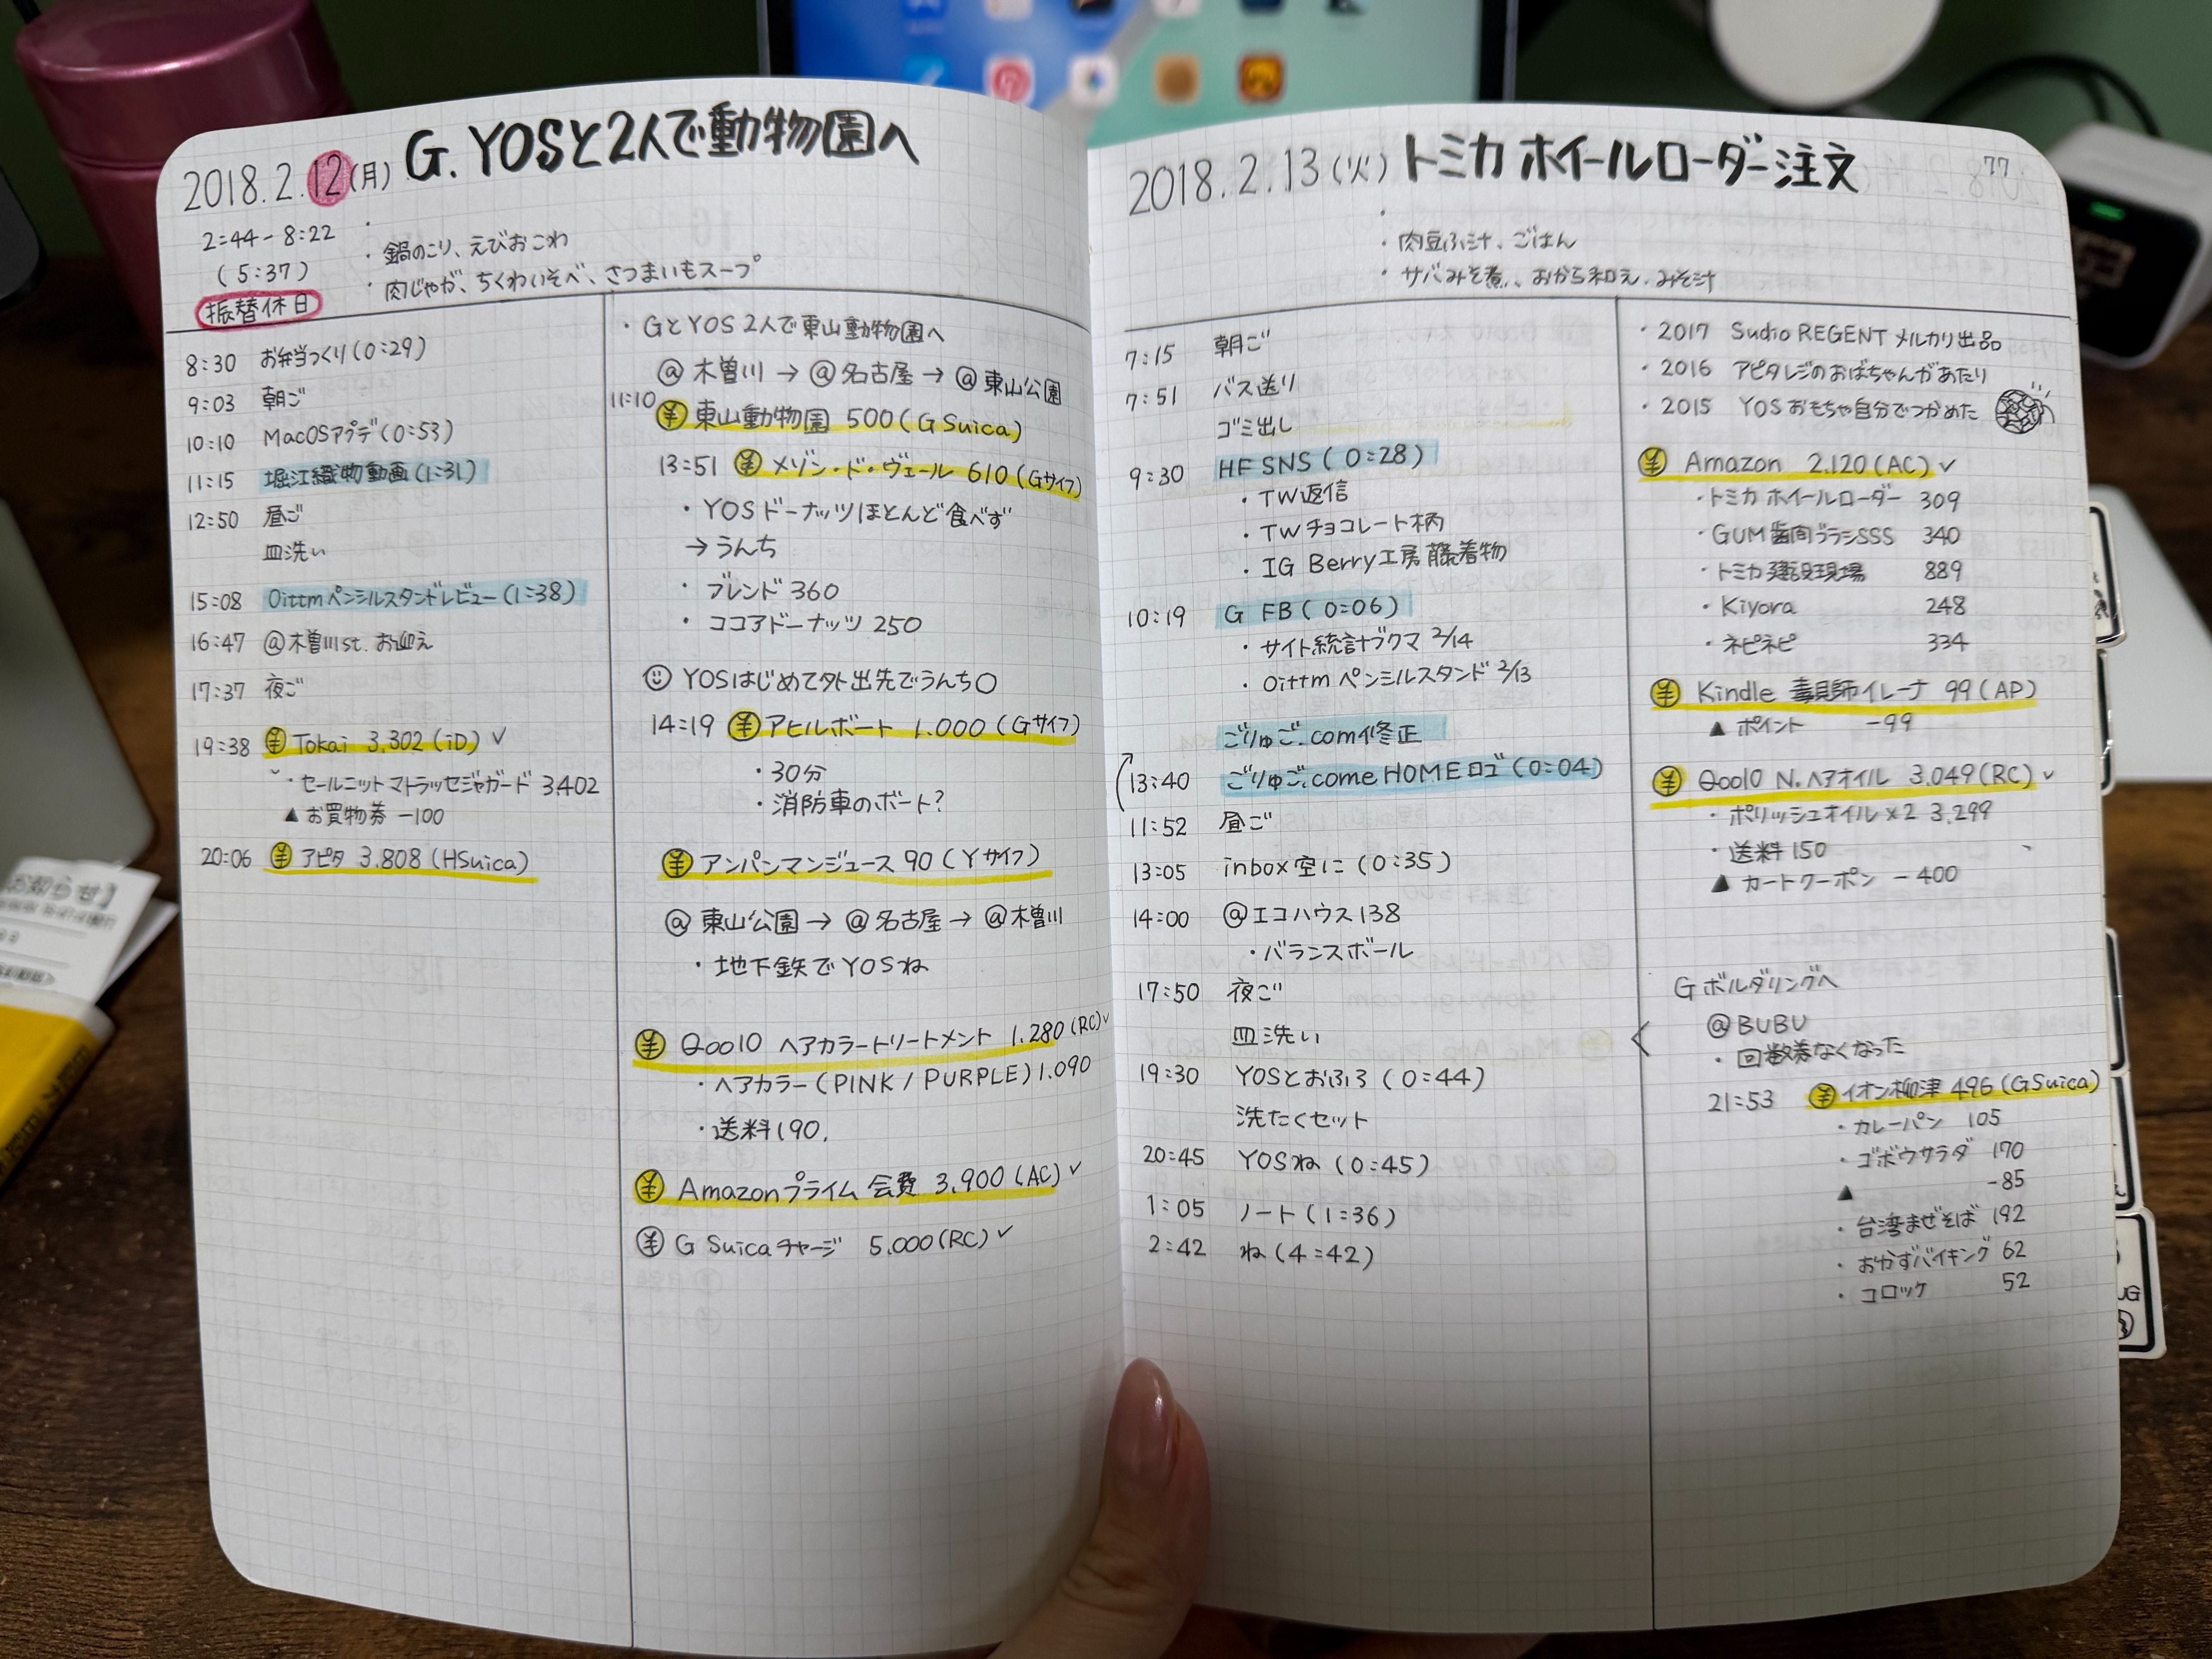 2018.2.12(月) G.YOSと2人で動物園へ
2:44-8:22
(5:37)
振替休日
・
・鍋のこり、えびおこわ
・肉じゃが、ちくわいそべ、さつまいもスープ
8:30 お弁当つくり(0:29)
9:03 朝ご
10:10 MacOSアプデ(0:53)
11:15 堀江織物動画(1:31)
12:50 昼ご
皿洗い
15:08 Oittmペンシルスタンドレビュー(1:38)
16:47 @木曽川st.お迎え
17:37 夜ご
19:38 ¥ Tokai 3,302(iD)✓
・セールニットマトラッセジャガード 3,402
▲お買物券 -100
20:06 ¥ アピタ 3.808(HSuica)
・GとYOS 2人で東山動物園へ
@木曽川→@名古屋→@東山公園
11:10 ¥ 東山動物園 500(G Suica)
13:51 ¥ メゾン・ド・ヴェール 610(Gサイフ)
・YOSドーナッツほとんど食べず
→うんち
・ブレンド 360
・ココアドーナッツ 250
YOSはじめて外出先でうんち〇
14:19 ¥ アヒルボート 1.000(Gサイフ)
・30分
・消防車のボート?
¥ アンパンマンジュース 90(Yサイフ)
@東山公園→@名古屋→@木曽川
・地下鉄でYOSね
¥ Qoo10 ヘアカラートリートメント 1.280(RC)✓
・ヘアカラー(PINK/PURPLE)1.090
・送料190.
¥ Amazonプライム会費 3.900(AC)✓
¥ G Suicaチャージ 5.000(RC)✓
77
2018.2.13(火) トミカ ホイールローダー注文
・
・肉豆ふ汁、ごはん
・サバみそ煮、おから和え、みそ汁
7:15 朝ご
7:51 バス送り
ゴミ出し
9:30 HF SNS(0:28)
・TW返信
・TWチョコレート柄
・IG Berry工房 藤着物
10:19 G FB(0:06)
・サイト統計ブクマ 2/14
・Oittmペンシルスタンド 2/13
ごりゅご.com修正
13:40 ごりゅご.come HOMEロゴ(0:04)
11:52 昼ご
13:05 inbox空に(0:35)
14:00 @エコハウス138
・バランスボール
17:50 夜ご
皿洗い
19:30 YOSとおふろ(0:44)
洗たくセット
20:45 YOSね(0:45)
1:05 ノート(1:36)
2:42 ね(4:42)
・2017 Sudio REGENTメルカリ出品
・2016 アピタレジのおばちゃんがあたり
・2015 YOSおもちゃ自分でつかめた
¥ Amazon 2.120(AC)✓
・トミカ ホイールローダー 309
・GUM歯間ブラシSSS 340
・トミカ建設現場 889
・Kiyora 248
・ネピネピ 334
¥ Kindle 毒見師イレーナ 99(AP)
▲ポイント -99
¥ Qoo10 N.ヘアオイル 3.049(RC)✓
・ポリッシュオイル×2 3,299
・送料150
▲カートクーポン -400
Gボルダリングへ
@BUBU
・回数券なくなった
21:53 ¥ イオン柳津 496(GSuica)
・カレーパン 105
・ゴボウサラダ 170
▲ -85
・台湾まぜそば 192
・おかずバイキング 62
・コロッケ 52